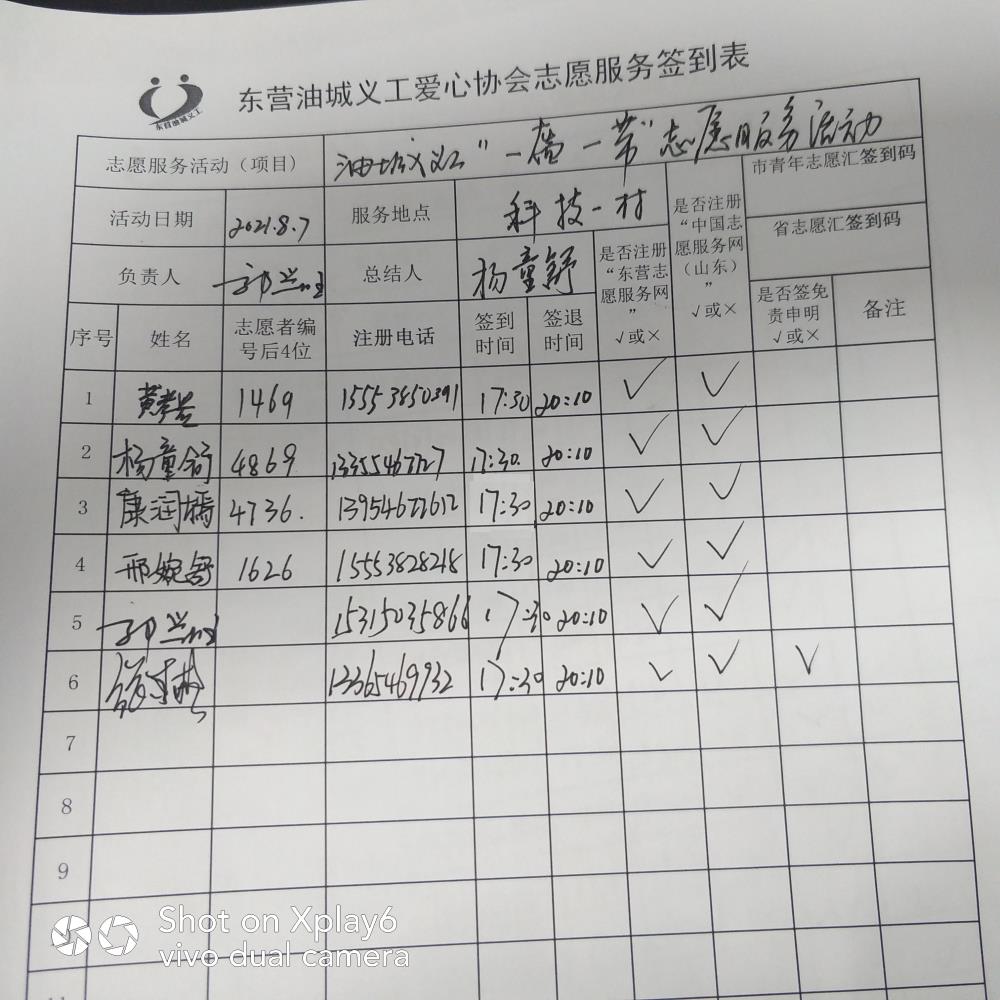 东营油城义工
东营油城义工爱心协会志愿服务签到表
志愿服务活动（项目） 油城义工"一墙一带"志愿服务活动
活动日期 2021.8.7 服务地点 科技一村 市青年志愿汇签到码
负责人 总结人 杨童舒 省志愿汇签到码
是否注册“东营志愿服务网” √或×
是否注册“中国志愿服务网（山东）” √或×
序号 姓名 志愿者编号后4位 注册电话 签到时间 签退时间 是否签免责申明 √或× 备注
1 1469 15553850391 17:30 20:10 √ √
2 杨童舒 4869 13355467727 17:30. 20:10 √ √
3 康润 4736. 13954672612 17:30 20:10 √ √
4 邢婉舒 1626 15553828218 17:30 20:10 √ √
5 15315035866 17:30 20:10 √ √
6 13365469932 17:30 20:10 √ √ √
7
8
9
Shot on Xplay6
vivo dual camera